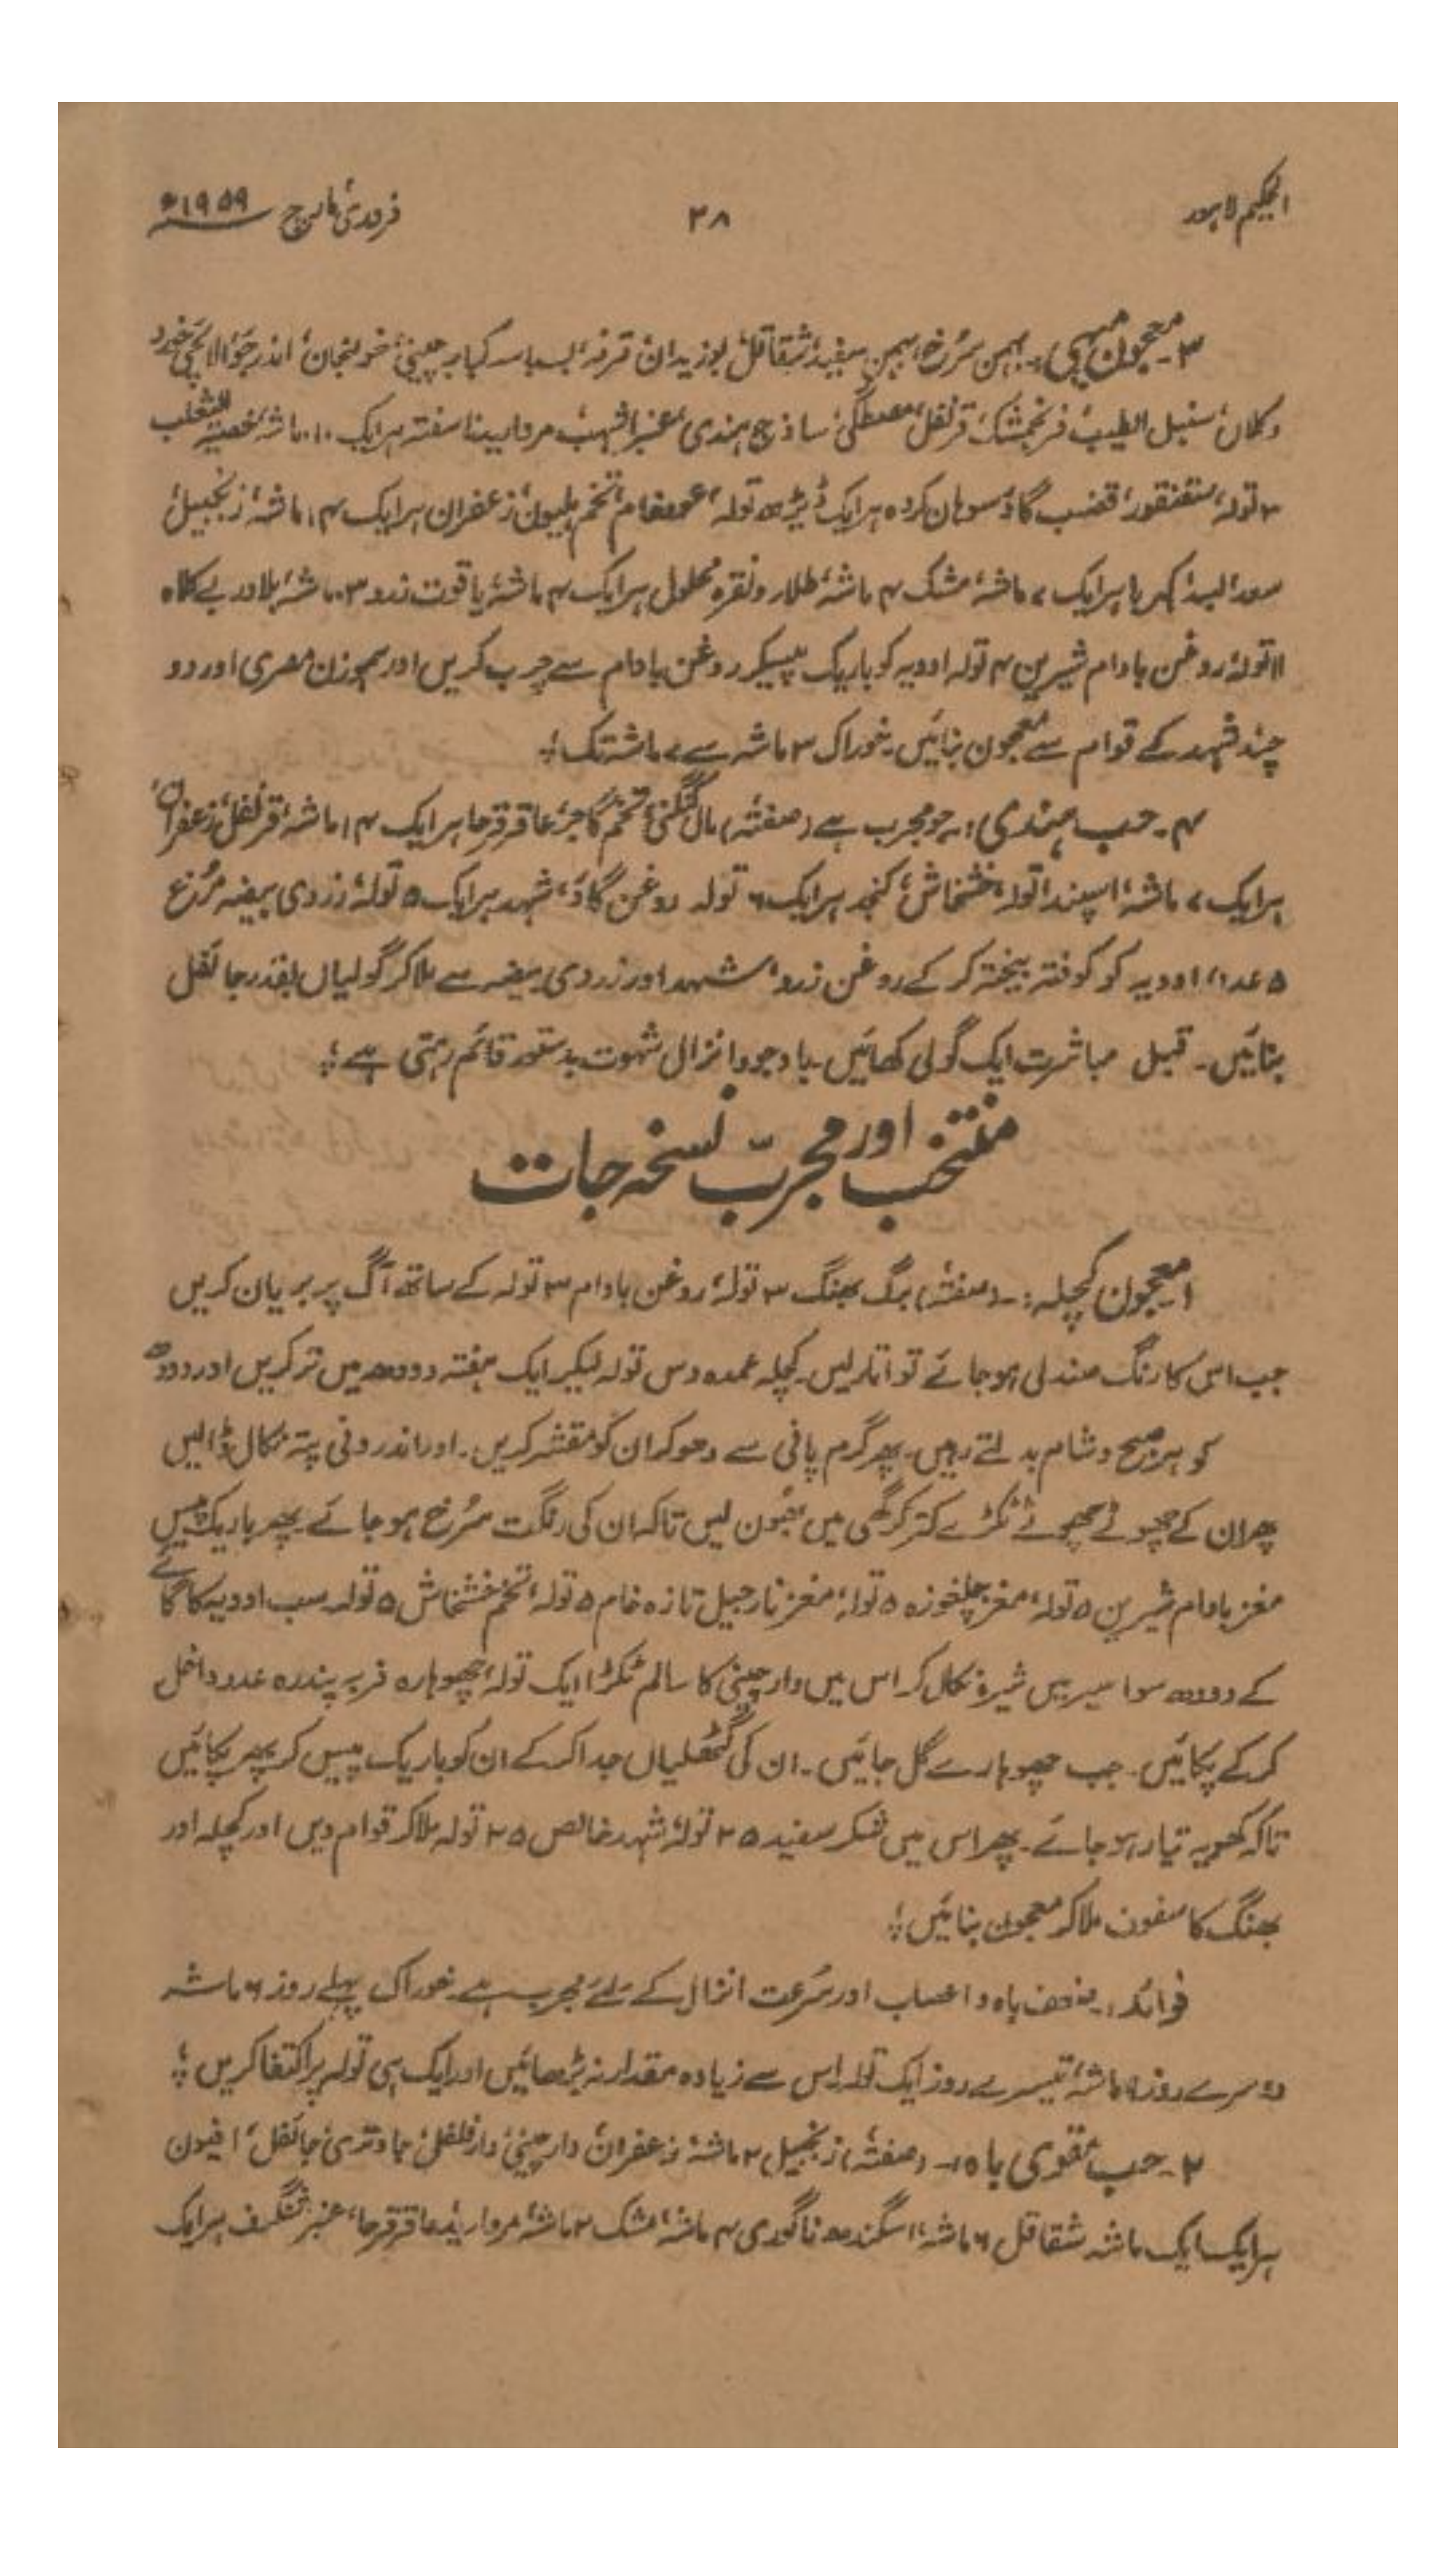 الحکیم لاہور
۳۸
فروری، مارچ ۱۹۵۹ء
۳۔ معجون مہیی :۔ بہمن سُرخ، بہمن سفید، شقاقل، بوزیدان، قرفہ، بسباسہ، کبابہ چینی، خولنجان، اندرجَو، الائچی خورد
وکلاں، سنبل الطیب، فرنجمشک، قرنفل، مصطگی، ساذج ہندی، عنبر اشہب، مروارید ناسفتہ ہر ایک ۱۰ ماشہ، خصیۃ الثعلب
۲ تولہ، سقنقور، قضیب گاؤ سوہان کردہ ہر ایک ڈیڑھ تولہ، عود خام، تخم ہلیون، زعفران ہر ایک ۴ ماشہ، زنجبیل
سعد، لبد، کہربا ہر ایک ۷ ماشہ، مشک ۴ ماشہ، طلاء و نقرہ محلول ہر ایک ۴ ماشہ، یاقوت زرد ۳ ماشہ، بلادر بے کلاہ
۱۱ تولہ، روغن بادام شیریں ۴ تولہ ادویہ کو باریک پیسکر روغن بادام سے چرب کریں اور ہموزن مصری اور دو
چند شہد کے قوام سے معجون بنائیں۔ خوراک ۳ ماشہ سے ۷ ماشہ تک ؛
۴۔ حب ہندی :۔ جو مجرب ہے (صفتہ) مالکنگنی، تخم گاجر، عاقر قرحا ہر ایک ۱۴ ماشہ، قرنفل، زعفران،
ہر ایک ۷ ماشہ، اسپند ا تولہ، خشخاش، کنجد ہر ایک ۶ تولہ روغن گاؤ، شہد ہر ایک ۵ تولہ، زردی بیضہ مُرغ
۵ عدد، ادویہ کو کوفتہ بیختہ کر کے روغن زرد، شہد اور زردی بیضہ سے ملا کر گولیاں بقدر جائفل
بنائیں۔ قبل مباشرت ایک گولی کھائیں۔ باوجود انزال شہوت بدستور قائم رہتی ہے ؛
منتخب اور مجرّب نسخہ جات
۱ معجون کچلہ :۔ (صفتہ) برگ بھنگ ۳ تولہ، روغن بادام ۳ تولہ کے ساتھ آگ پر بریان کریں
جب اس کا رنگ صندلی ہو جائے تو اتار لیں۔ کچلہ عمدہ دس تولہ لیکر ایک ہفتہ دودھ میں تر کریں اور دودھ
کو ہر صبح و شام بدلتے رہیں۔ پھر گرم پانی سے دھوکر ان کو مقشر کریں۔ اور اندرونی پتہ نکال ڈالیں
پھر ان کے چھوٹے چھوٹے ٹکڑے کتر کر گھی میں بھُون لیں تاکہ ان کی رنگت سُرخ ہو جائے۔ پھر باریک پیس
مغز بادام شیریں ۵ تولہ، مغز چلغوزہ ۵ تولہ، مغز نارجیل تازہ خام ۵ تولہ، تخم خشخاش ۵ تولہ سب ادویہ کا گائے
کے دودھ سوا سیر میں شیرہ نکال کر اس میں دار چینی کا سالم ٹکڑا ایک تولہ، چھوہارہ فربہ پندرہ عدد داخل
کر کے پکائیں۔ جب چھوہارے گل جائیں۔ ان کی گٹھلیاں جدا کر کے ان کو باریک پیس کر پھر پکائیں
تاکہ کھویہ تیار ہو جائے۔ پھر اس میں شکر سفید ۲۵ تولہ، شہد خالص ۲۵ تولہ ملا کر قوام دیں اور کچلہ اور
بھنگ کا سفوف ملا کر معجون بنائیں ؛
فوائد :۔ ضعف باہ و اعصاب اور سُرعت انزال کے لئے مجرب ہے۔ خوراک پہلے روز ۶ ماشہ
دوسرے روز ۹ ماشہ، تیسرے روز ایک تولہ، اس سے زیادہ مقدار نہ بڑھائیں اور ایک ہی تولہ پر اکتفا کریں ؛
۲۔ حب مقوی باہ :۔ (صفتہ) زنجبیل ۲ ماشہ، زعفران، دار چینی، دار فلفل، جاوتری، جائفل، افیون
ہر ایک ایک ماشہ شقاقل ۶ ماشہ، اسگندھ ناگوری ۴ ماشہ، مشک ۲ ماشہ، مروارید، عاقرقرحا، عنبر، شنگرف ہر ایک